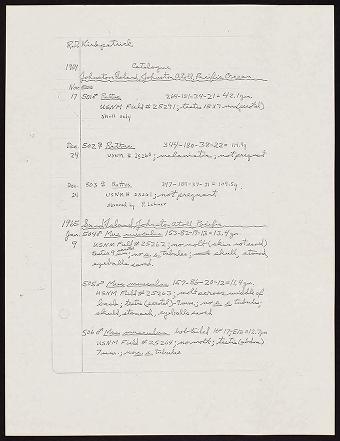 R.D. Kirkpatrick
1964 Catalogue
Johnston Island, Johnston Atoll, Pacific Ocean
Nov.
17 501♂ Rattus 264-131-34-21 = 42.1gm
USNM Field # 25291; testes
skull only
Dec. 502♀ Rattus 344-180-38-22 =
24 USNM # 25260; melanistic, not pregnant
Dec. 503 ♀ Rattus = 109.5g
24 USNM # 25261; not pregnant
1965 Sand Island, Johnston Atoll, Pacific
Jan. 504♂ Mus musculus 153-82-17-13 = 13.4gm
9 USNM Field # 25262; no molt (skin saved)
testes 9mm; no tubules; skull, stomach,
eyeballs saved.
505♂ Mus musculus 157-86-20-12 = 11.4gm
USNM Field # 25263; molt across middle of
back; testes (scrotal) - 7mm; no tubules;
skull, stomach, eyeballs saved
506♂ Mus musculus bob-tailed
USNM Field # 25264; no molt; testes (abdom)
7mm.; no tubules